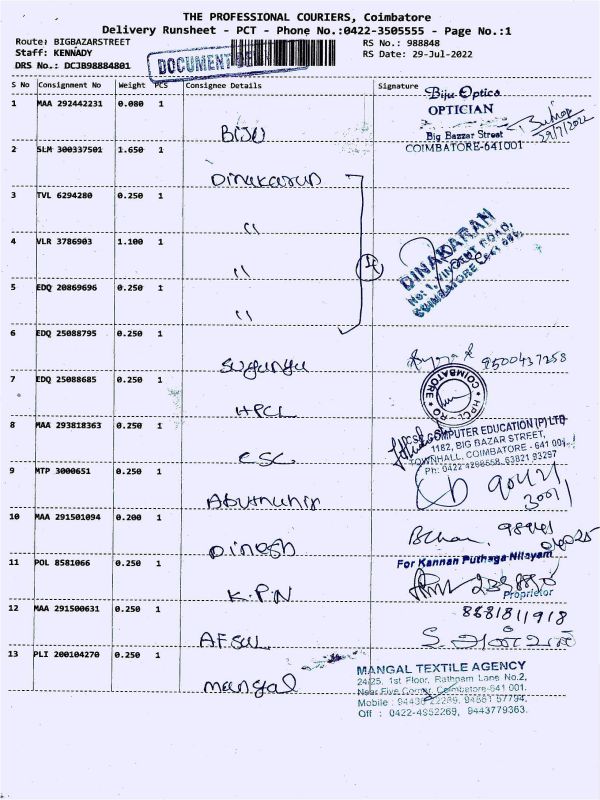 THE PROFESSIONAL COURIERS, Coimbatore
Delivery Runsheet - PCT - Phone No.:0422-3505555 - Page No.:1
Route: BIGBAZARSTREET
RS No.: 988848
Staff: KENNADY
RS Date: 29-Jul-2022
DRS No.: DCJB98884801
DOCUMENT
S No Consignment No Weight PCS Consignee Details Signature
Biju Optics
OPTICIAN
Big Bazzar Street
COIMBATORE-641001
29/7/2022
1 MAA 292442231 0.080 1
BIJU
2 SLM 300337501 1.650 1
Dinakaran
3 TVL 6294280 0.250 1
"
4 VLR 3786903 1.100 1
"
DINAKARAN
COIMBATORE
5 EDQ 20869696 0.250 1
"
6 EDQ 25088795 0.250 1
9500437258
7 EDQ 25088685 0.250 1
HPCL
COIMBATORE
HPCL RO
8 MAA 293818363 0.250 1
CSC
CSC COMPUTER EDUCATION (P) LTD
1182, BIG BAZAR STREET,
TOWNHALL, COIMBATORE - 641 001
9 MTP 3000651 0.250 1
10 MAA 291501094 0.200 1
Dinesh
11 POL 8581066 0.250 1
K.P.N
For Kannan Puthaga Nilayam
Proprietor
12 MAA 291500631 0.250 1
8681811918
13 PLI 200104270 0.250 1
mangal
MANGAL TEXTILE AGENCY
24/25, 1st Floor, Rathnam Lane No.2,
Near Five Corner, Coimbatore-641 001.
Off : 0422-4952269, 9443779363.